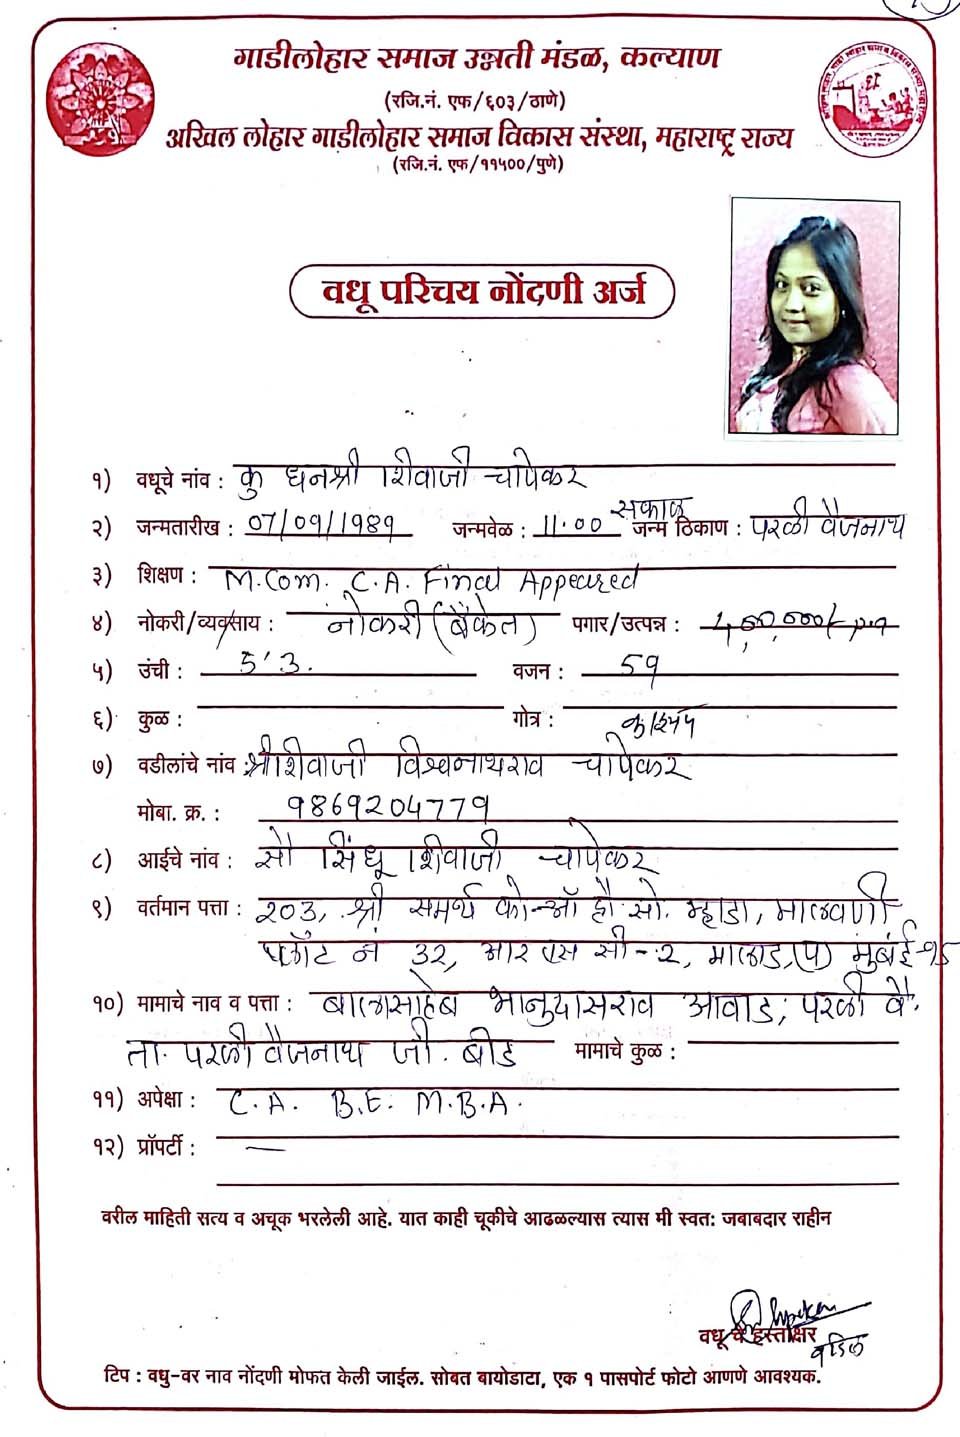 गाडीलोहार समाज उन्नती मंडळ, कल्याण
(रजि.नं. एफ/६०३/ठाणे)
अखिल लोहार गाडीलोहार समाज विकास संस्था, महाराष्ट्र राज्य
(रजि.नं. एफ/११५००/पुणे)
वधू परिचय नोंदणी अर्ज
१) वधूचे नांव : कु धनश्री शिवाजी चापेकर
२) जन्मतारीख : 07/09/1989 जन्मवेळ : 11.00 सकाळ जन्म ठिकाण : परळी वैजनाथ
३) शिक्षण : M.Com. C.A. Final Appeared
४) नोकरी/व्यवसाय : नोकरी (बँकेत) पगार/उत्पन्न : 4,00,000/-
५) उंची : 5'3. वजन : 59
६) कुळ : गोत्र : काश्यप
७) वडीलांचे नांव : श्री शिवाजी विश्वनाथराव चापेकर
मोबा. क्र. : 9869204779
८) आईचे नांव : सौ सिंधू शिवाजी चापेकर
९) वर्तमान पत्ता : 203, श्री समर्थ को-ऑ हौ सो. म्हाडा, मालवणी
प्लॉट नं 32, आर एस सी-2, मालाड, (प) मुंबई-95
१०) मामाचे नाव व पत्ता : बालासाहेब भानुदासराव आवाड, परळी वै.
ता. परळी वैजनाथ जी. बीड मामाचे कुळ :
११) अपेक्षा : C.A. B.E. M.B.A.
१२) प्रॉपर्टी : —
वरील माहिती सत्य व अचूक भरलेली आहे. यात काही चूकीचे आढळल्यास त्यास मी स्वत: जबाबदार राहीन
वधू चे हस्ताक्षर
वडिल
टिप : वधु-वर नाव नोंदणी मोफत केली जाईल. सोबत बायोडाटा, एक १ पासपोर्ट फोटो आणणे आवश्यक.